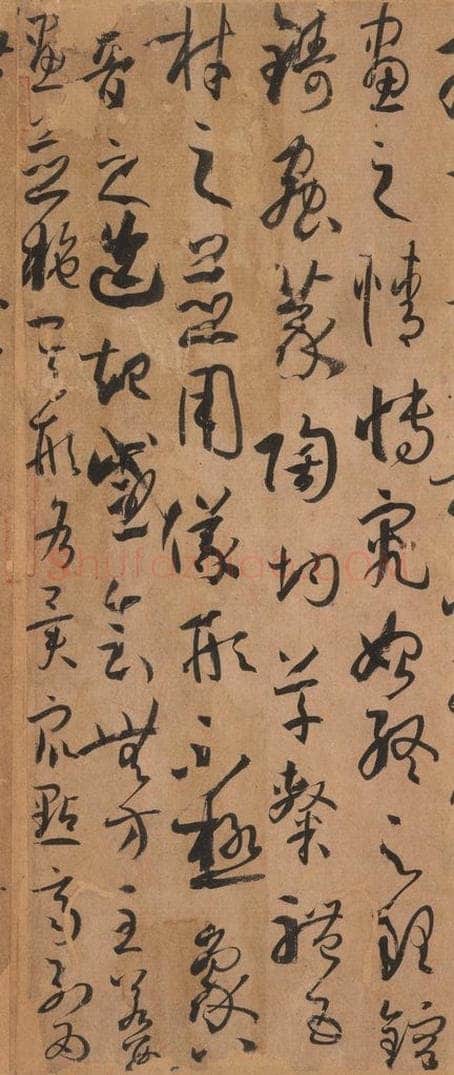 畫之情博究始終之理鎔
鑄蟲篆陶均草隸體五
材之並用儀形不極象八
音之迭起感會無方至若數
畫並施其形各異眾點齊列為